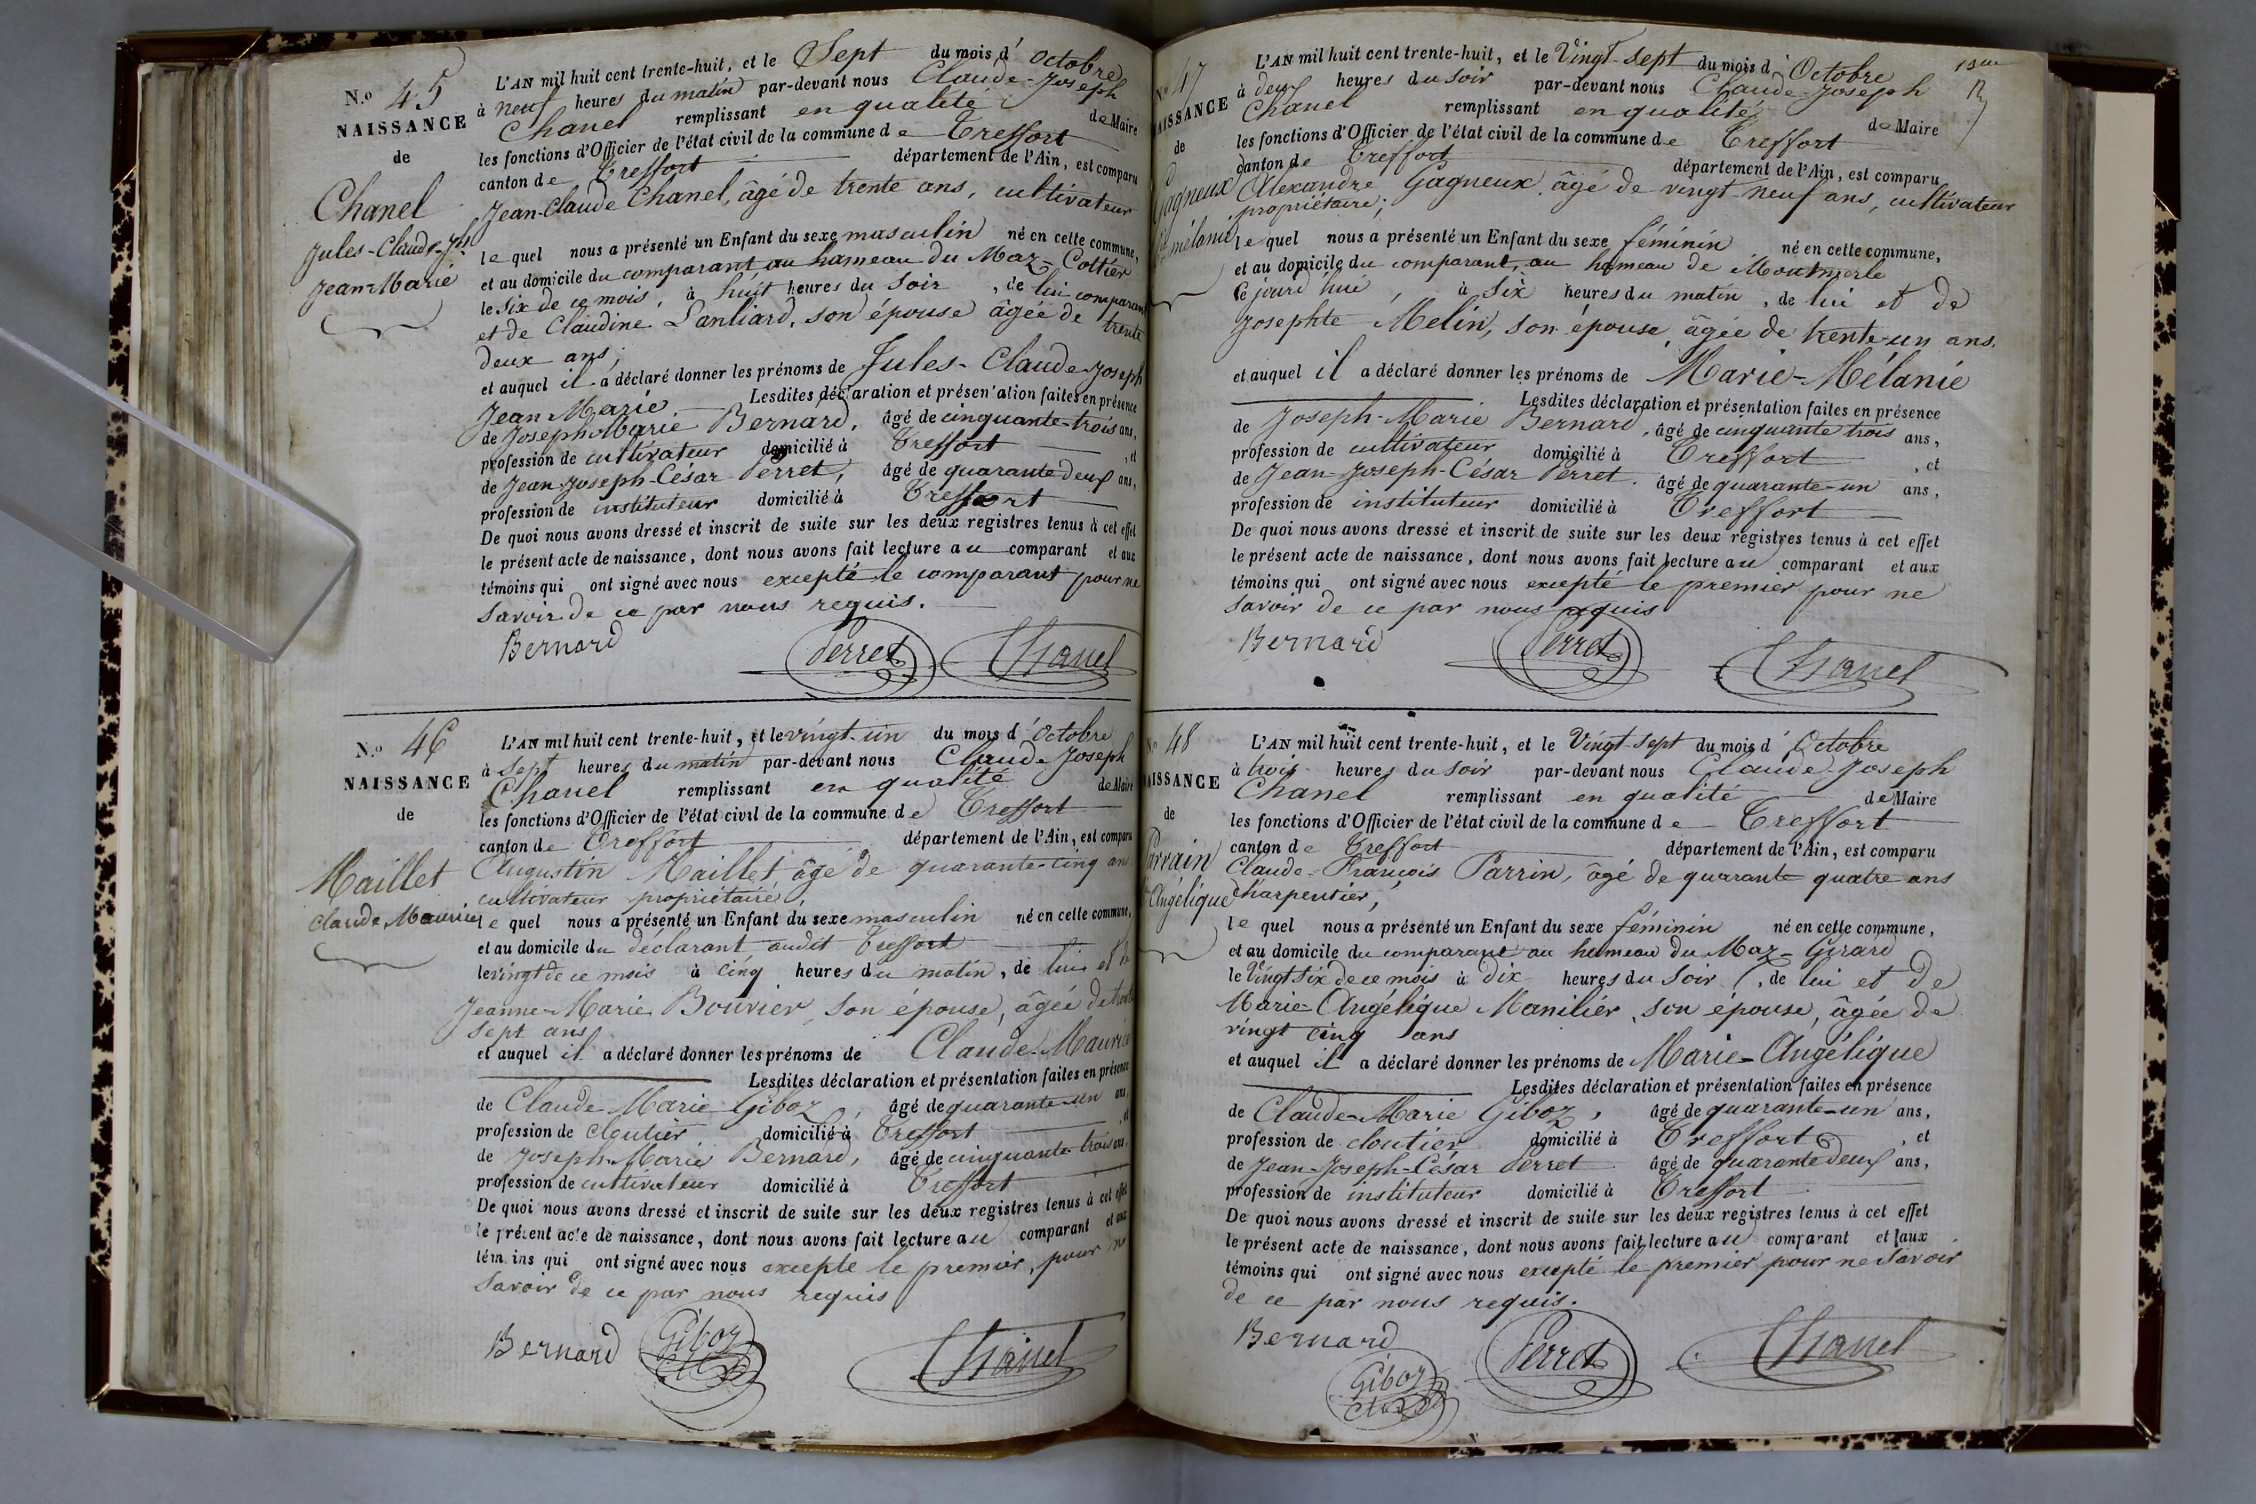 N.o 45
NAISSANCE
de
Chanel
Jules-Claude-Jh
Jean-Marie
L'AN mil huit cent trente-huit, et le Sept du mois d'Octobre
à neuf heures du matin par-devant nous Claude-Joseph
Chanel remplissant en qualité de Maire
les fonctions d'Officier de l'état civil de la commune de Treffort
canton de Treffort département de l'Ain, est comparu
Jean-Claude Chanel, âgé de trente ans, cultivateur
lequel nous a présenté un Enfant du sexe masculin né en cette commune,
et au domicile du comparant au hameau du Maz-Cottier
le six de ce mois, à huit heures du soir, de lui comparant
et de Claudine Lanliard, son épouse âgée de trente
deux ans;
et auquel il a déclaré donner les prénoms de Jules-Claude-Joseph
Jean Marie. Lesdites déclaration et présentation faites en présence
de Joseph-Marie Bernard, âgé de cinquante-trois ans,
profession de cultivateur domicilié à Treffort, et
de Jean-Joseph-César Perret, âgé de quarante deux ans,
profession de instituteur domicilié à Treffort
De quoi nous avons dressé et inscrit de suite sur les deux registres tenus à cet effet
le présent acte de naissance, dont nous avons fait lecture au comparant et aux
témoins qui ont signé avec nous excepté le comparant pour ne
savoir de ce par nous requis.
Bernard Perret Chanel
N.o 46
NAISSANCE
de
Maillet
Claude Maurice
L'AN mil huit cent trente-huit, et le vingt-un du mois d'Octobre
à sept heures du matin par-devant nous Claude-Joseph
Chanel remplissant en qualité de Maire
les fonctions d'Officier de l'état civil de la commune de Treffort
canton de Treffort département de l'Ain, est comparu
Augustin Maillet âgé de quarante-cinq ans
cultivateur propriétaire,
lequel nous a présenté un Enfant du sexe masculin né en cette commune,
et au domicile du déclarant audit Treffort
le vingt de ce mois à cinq heures du matin, de lui et de
Jeanne-Marie Bouvier, son épouse, âgée de trente
sept ans
et auquel il a déclaré donner les prénoms de Claude-Maurice
Lesdites déclaration et présentation faites en présence
de Claude-Marie Giboz, âgé de quarante-un ans,
profession de cloutier domicilié à Treffort, et
de Joseph-Marie Bernard, âgé de cinquante-trois ans
profession de cultivateur domicilié à Treffort
De quoi nous avons dressé et inscrit de suite sur les deux registres tenus à cet effet
le présent acte de naissance, dont nous avons fait lecture au comparant et aux
témoins qui ont signé avec nous excepté le premier, pour ne
savoir de ce par nous requis
Bernard Giboz Chanel
N.o 47
NAISSANCE
de
Gagneux
mélanie
L'AN mil huit cent trente-huit, et le Vingt-sept du mois d'Octobre
à deux heures du soir par-devant nous Claude-Joseph
Chanel remplissant en qualité de Maire
les fonctions d'Officier de l'état civil de la commune de Treffort
canton de Treffort département de l'Ain, est comparu
Alexandre Gagneux âgé de vingt-neuf ans, cultivateur
propriétaire;
lequel nous a présenté un Enfant du sexe féminin né en cette commune,
et au domicile du comparant, au hameau de Montmerle
ce jourd'hui, à six heures du matin, de lui et de
Josephte Melin, son épouse, âgée de trente-un ans.
et auquel il a déclaré donner les prénoms de Marie-Mélanie
Lesdites déclaration et présentation faites en présence
de Joseph-Marie Bernard, âgé de cinquante trois ans,
profession de cultivateur domicilié à Treffort, et
de Jean-Joseph-César Perret. âgé de quarante-un ans,
profession de instituteur domicilié à Treffort
De quoi nous avons dressé et inscrit de suite sur les deux registres tenus à cet effet
le présent acte de naissance, dont nous avons fait lecture au comparant et aux
témoins qui ont signé avec nous excepté le premier pour ne
savoir de ce par nous requis
Bernard Perret Chanel
N.o 48
NAISSANCE
de
Parrain
Angélique
L'AN mil huit cent trente-huit, et le Vingt-sept du mois d'Octobre
à trois heures du soir par-devant nous Claude-Joseph
Chanel remplissant en qualité de Maire
les fonctions d'Officier de l'état civil de la commune de Treffort
canton de Treffort département de l'Ain, est comparu
Claude-François Parrin, âgé de quarante quatre ans
charpentier,
lequel nous a présenté un Enfant du sexe féminin né en cette commune,
et au domicile du comparant au hameau du Maz-Girard
le Vingt six de ce mois à dix heures du soir, de lui et de
Marie-Angélique Manilier, son épouse, âgée de
vingt cinq ans
et auquel il a déclaré donner les prénoms de Marie-Angélique
Lesdites déclaration et présentation faites en présence
de Claude-Marie Giboz, âgé de quarante-un ans,
profession de cloutier domicilié à Treffort, et
de Jean-Joseph-César Perret âgé de quarante deux ans,
profession de instituteur domicilié à Treffort
De quoi nous avons dressé et inscrit de suite sur les deux registres tenus à cet effet
le présent acte de naissance, dont nous avons fait lecture au comparant et aux
témoins qui ont signé avec nous excepté le premier pour ne savoir
de ce par nous requis.
Bernard Giboz Perret Chanel